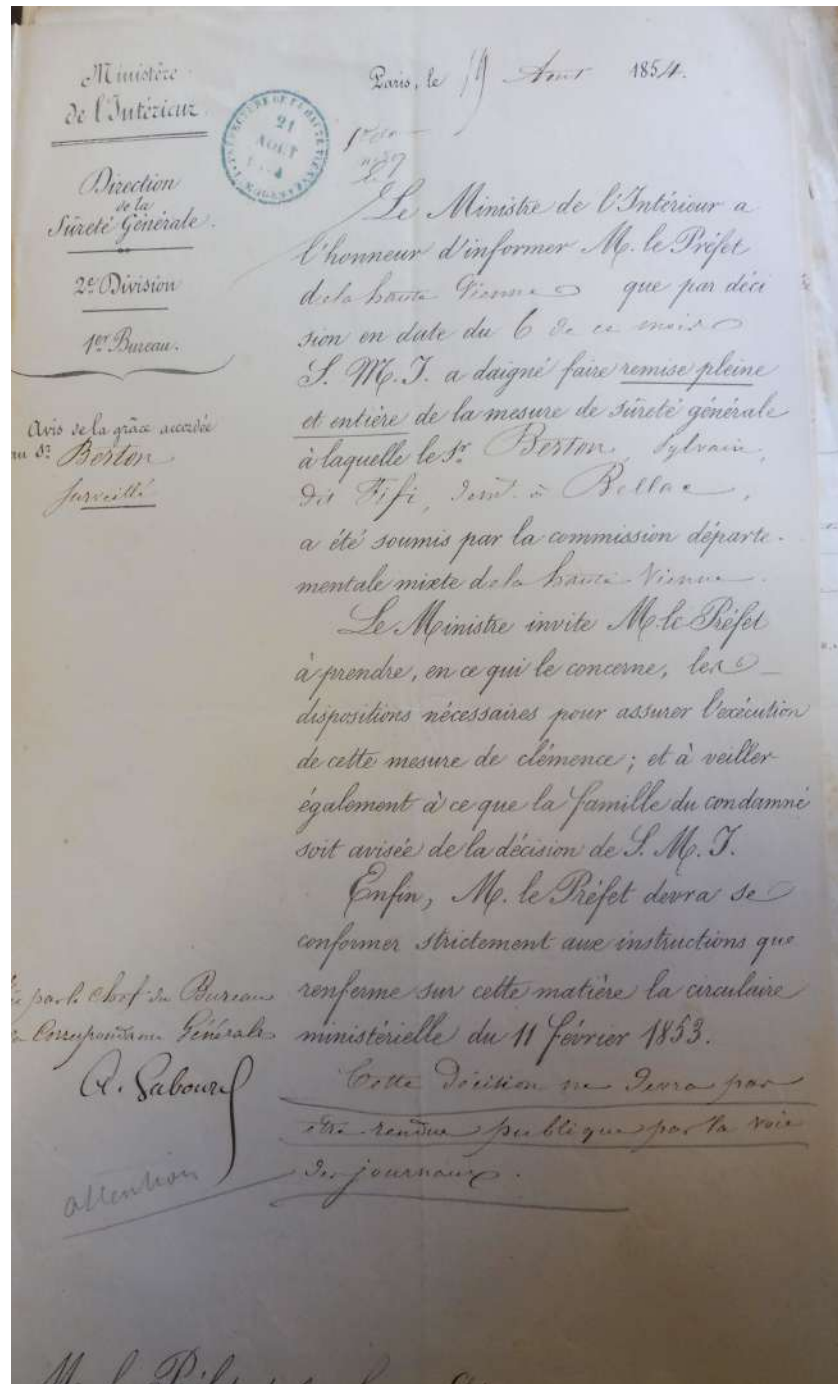 Ministère
de l'Intérieur
Direction
de la
Sûreté Générale.
2e Division
1er Bureau.
Avis de la grâce accordée
au Sr Berton
surveillé
Paris, le 19 Août 1854.
PRÉFECTURE DE LA HAUTE VIENNE
21
AOUT
Le Ministre de l'Intérieur a
l'honneur d'informer M. le Préfet
de la haute Vienne que par déci
sion en date du 6 de ce mois
S. M. I. a daigné faire remise pleine
et entière de la mesure de sûreté générale
à laquelle le Sr Berton, Sylvain,
dit Fifi, demt à Bellac,
a été soumis par la commission départe-
mentale mixte de la haute Vienne.
Le Ministre invite M. le Préfet
à prendre, en ce qui le concerne, les
dispositions nécessaires pour assurer l'exécution
de cette mesure de clémence; et à veiller
également à ce que la famille du condamné
soit avisée de la décision de S. M. I.
Enfin, M. le Préfet devra se
conformer strictement aux instructions que
renferme sur cette matière la circulaire
ministérielle du 11 février 1853.
Cette décision ne devra pas
être rendue publique par la voie
des journaux.
par le Chef du Bureau
Correspondance Générale
A. Gabourd
attention